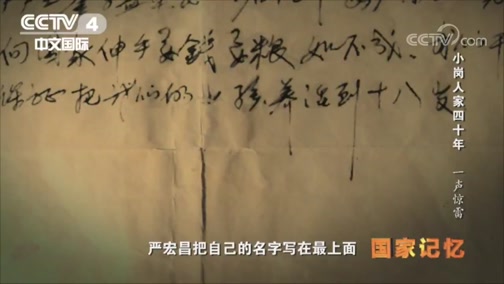 CCTV 4
中文国际
CCTV.com
向国家伸手要钱要粮如不成，
保证把我们的小孩养活到十八岁
小岗人家四十年
一声惊雷
严宏昌把自己的名字写在最上面
国家记忆